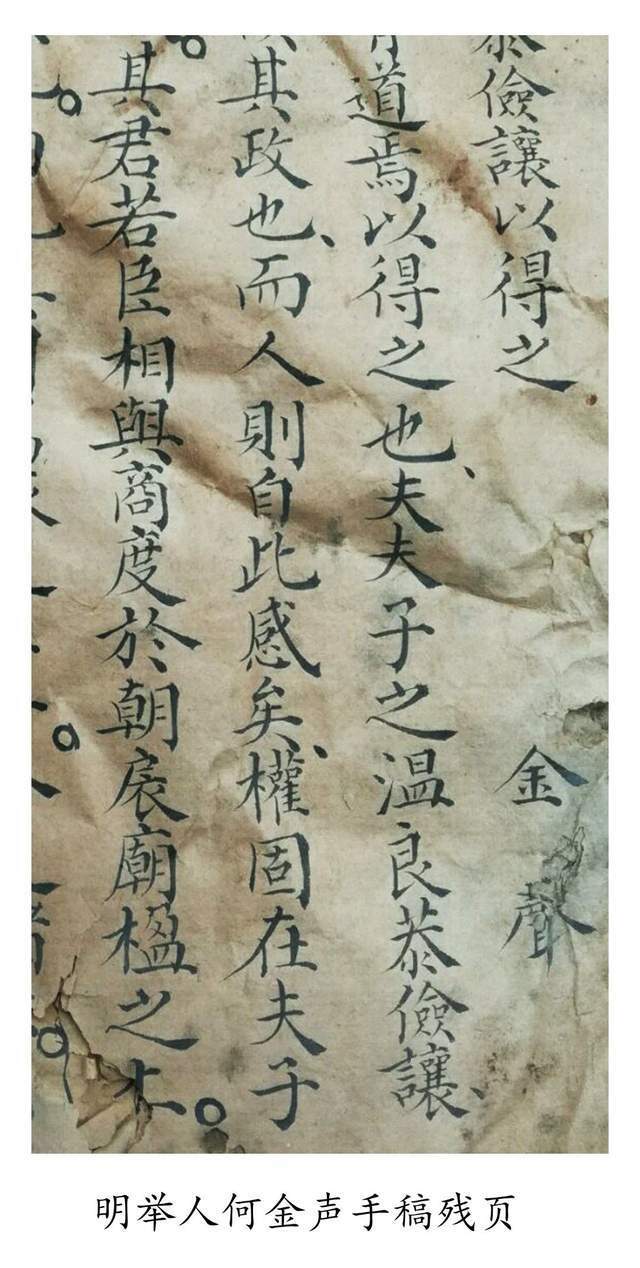 恭儉讓以得之　金聲
道焉以得之也、夫夫子之溫良恭儉讓、
其政也、而人則自此感矣、權固在夫子
其君若臣相與商度於朝扆廟楹之上。
明举人何金声手稿残页